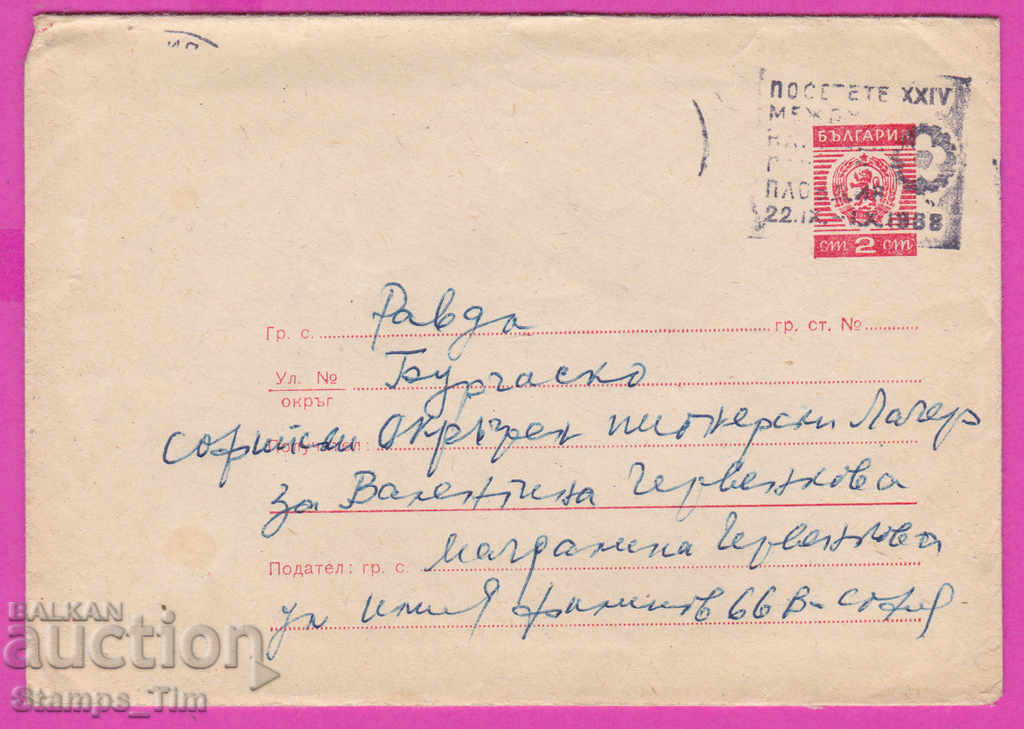 ПОСЕТЕТЕ XXIV
МЕЖДУ
22.IX. - 1.X.1968
БЪЛГАРИЯ
ст 2 ст
Гр. с. Равда гр. ст. №
Ул. № Бургаско
окръг
Получател:
Софийски Окръжен пионерски Лагер
за Валентина Червенкова
Подател: гр. с. Магдалина Червенкова
ул 66 В - София
BALKAN
auction
Stamps_Tim